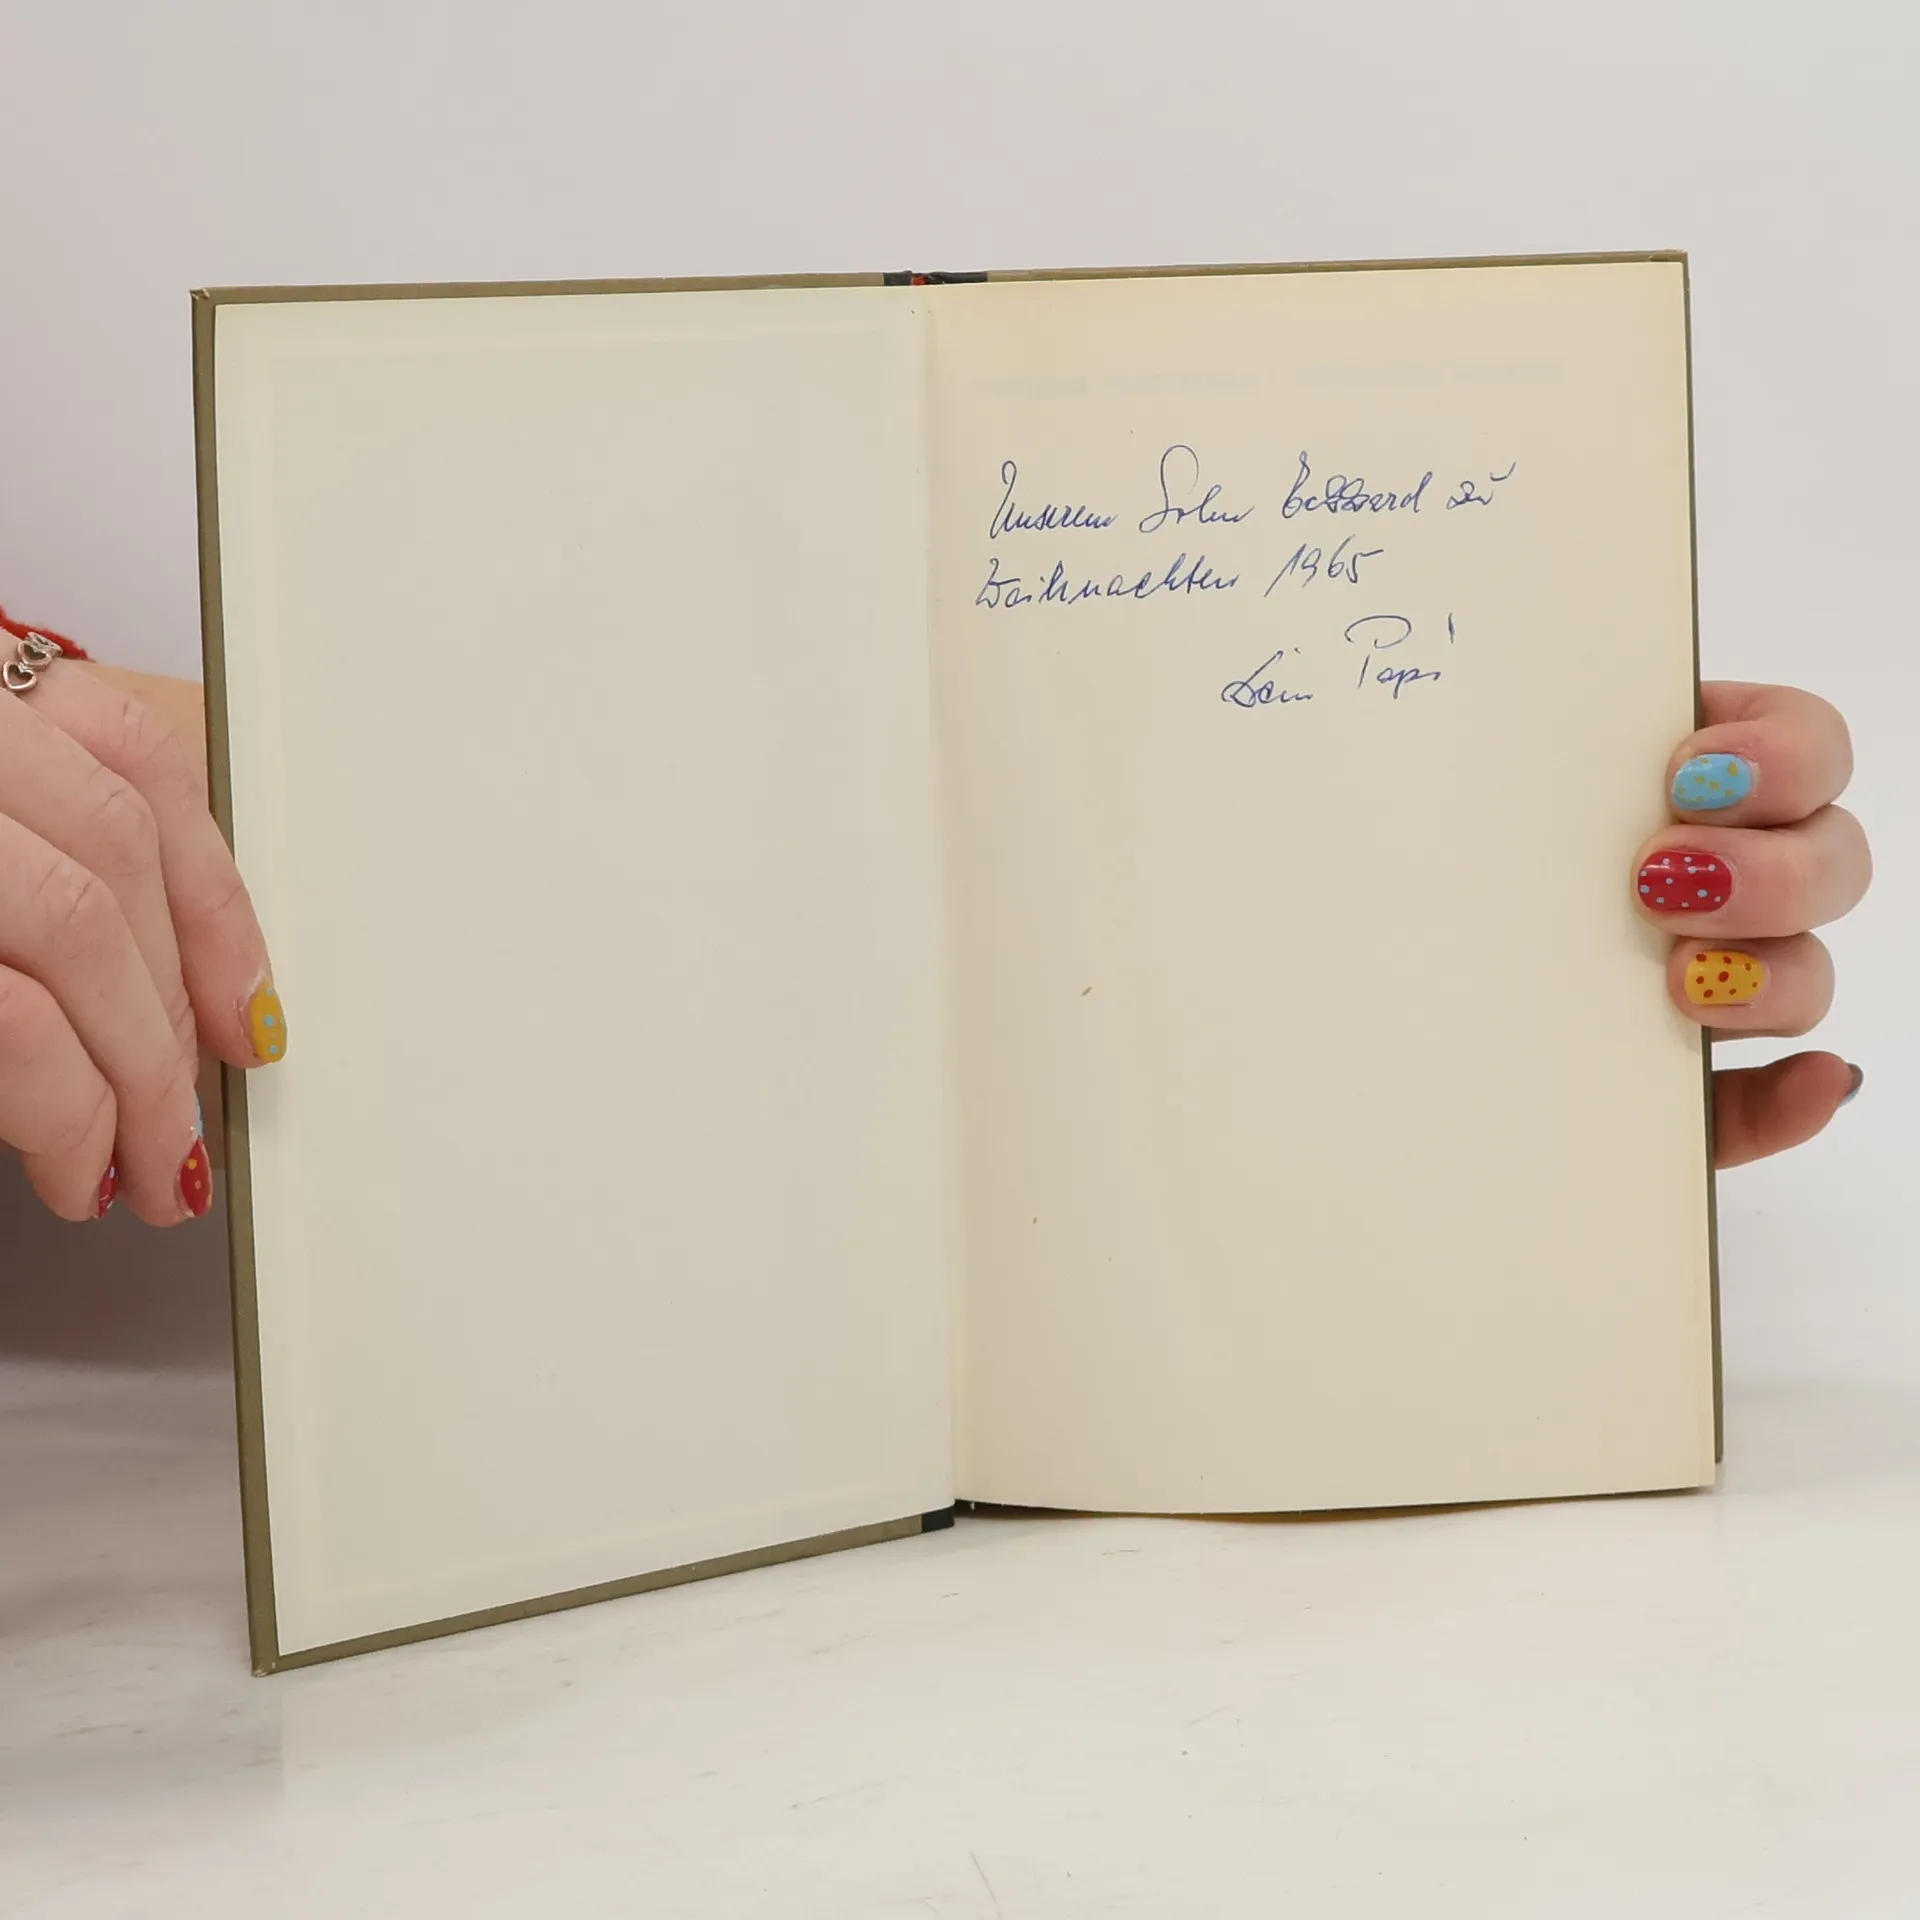 Unserem Sohn zu
Weihnachten 1965
Dein Papi